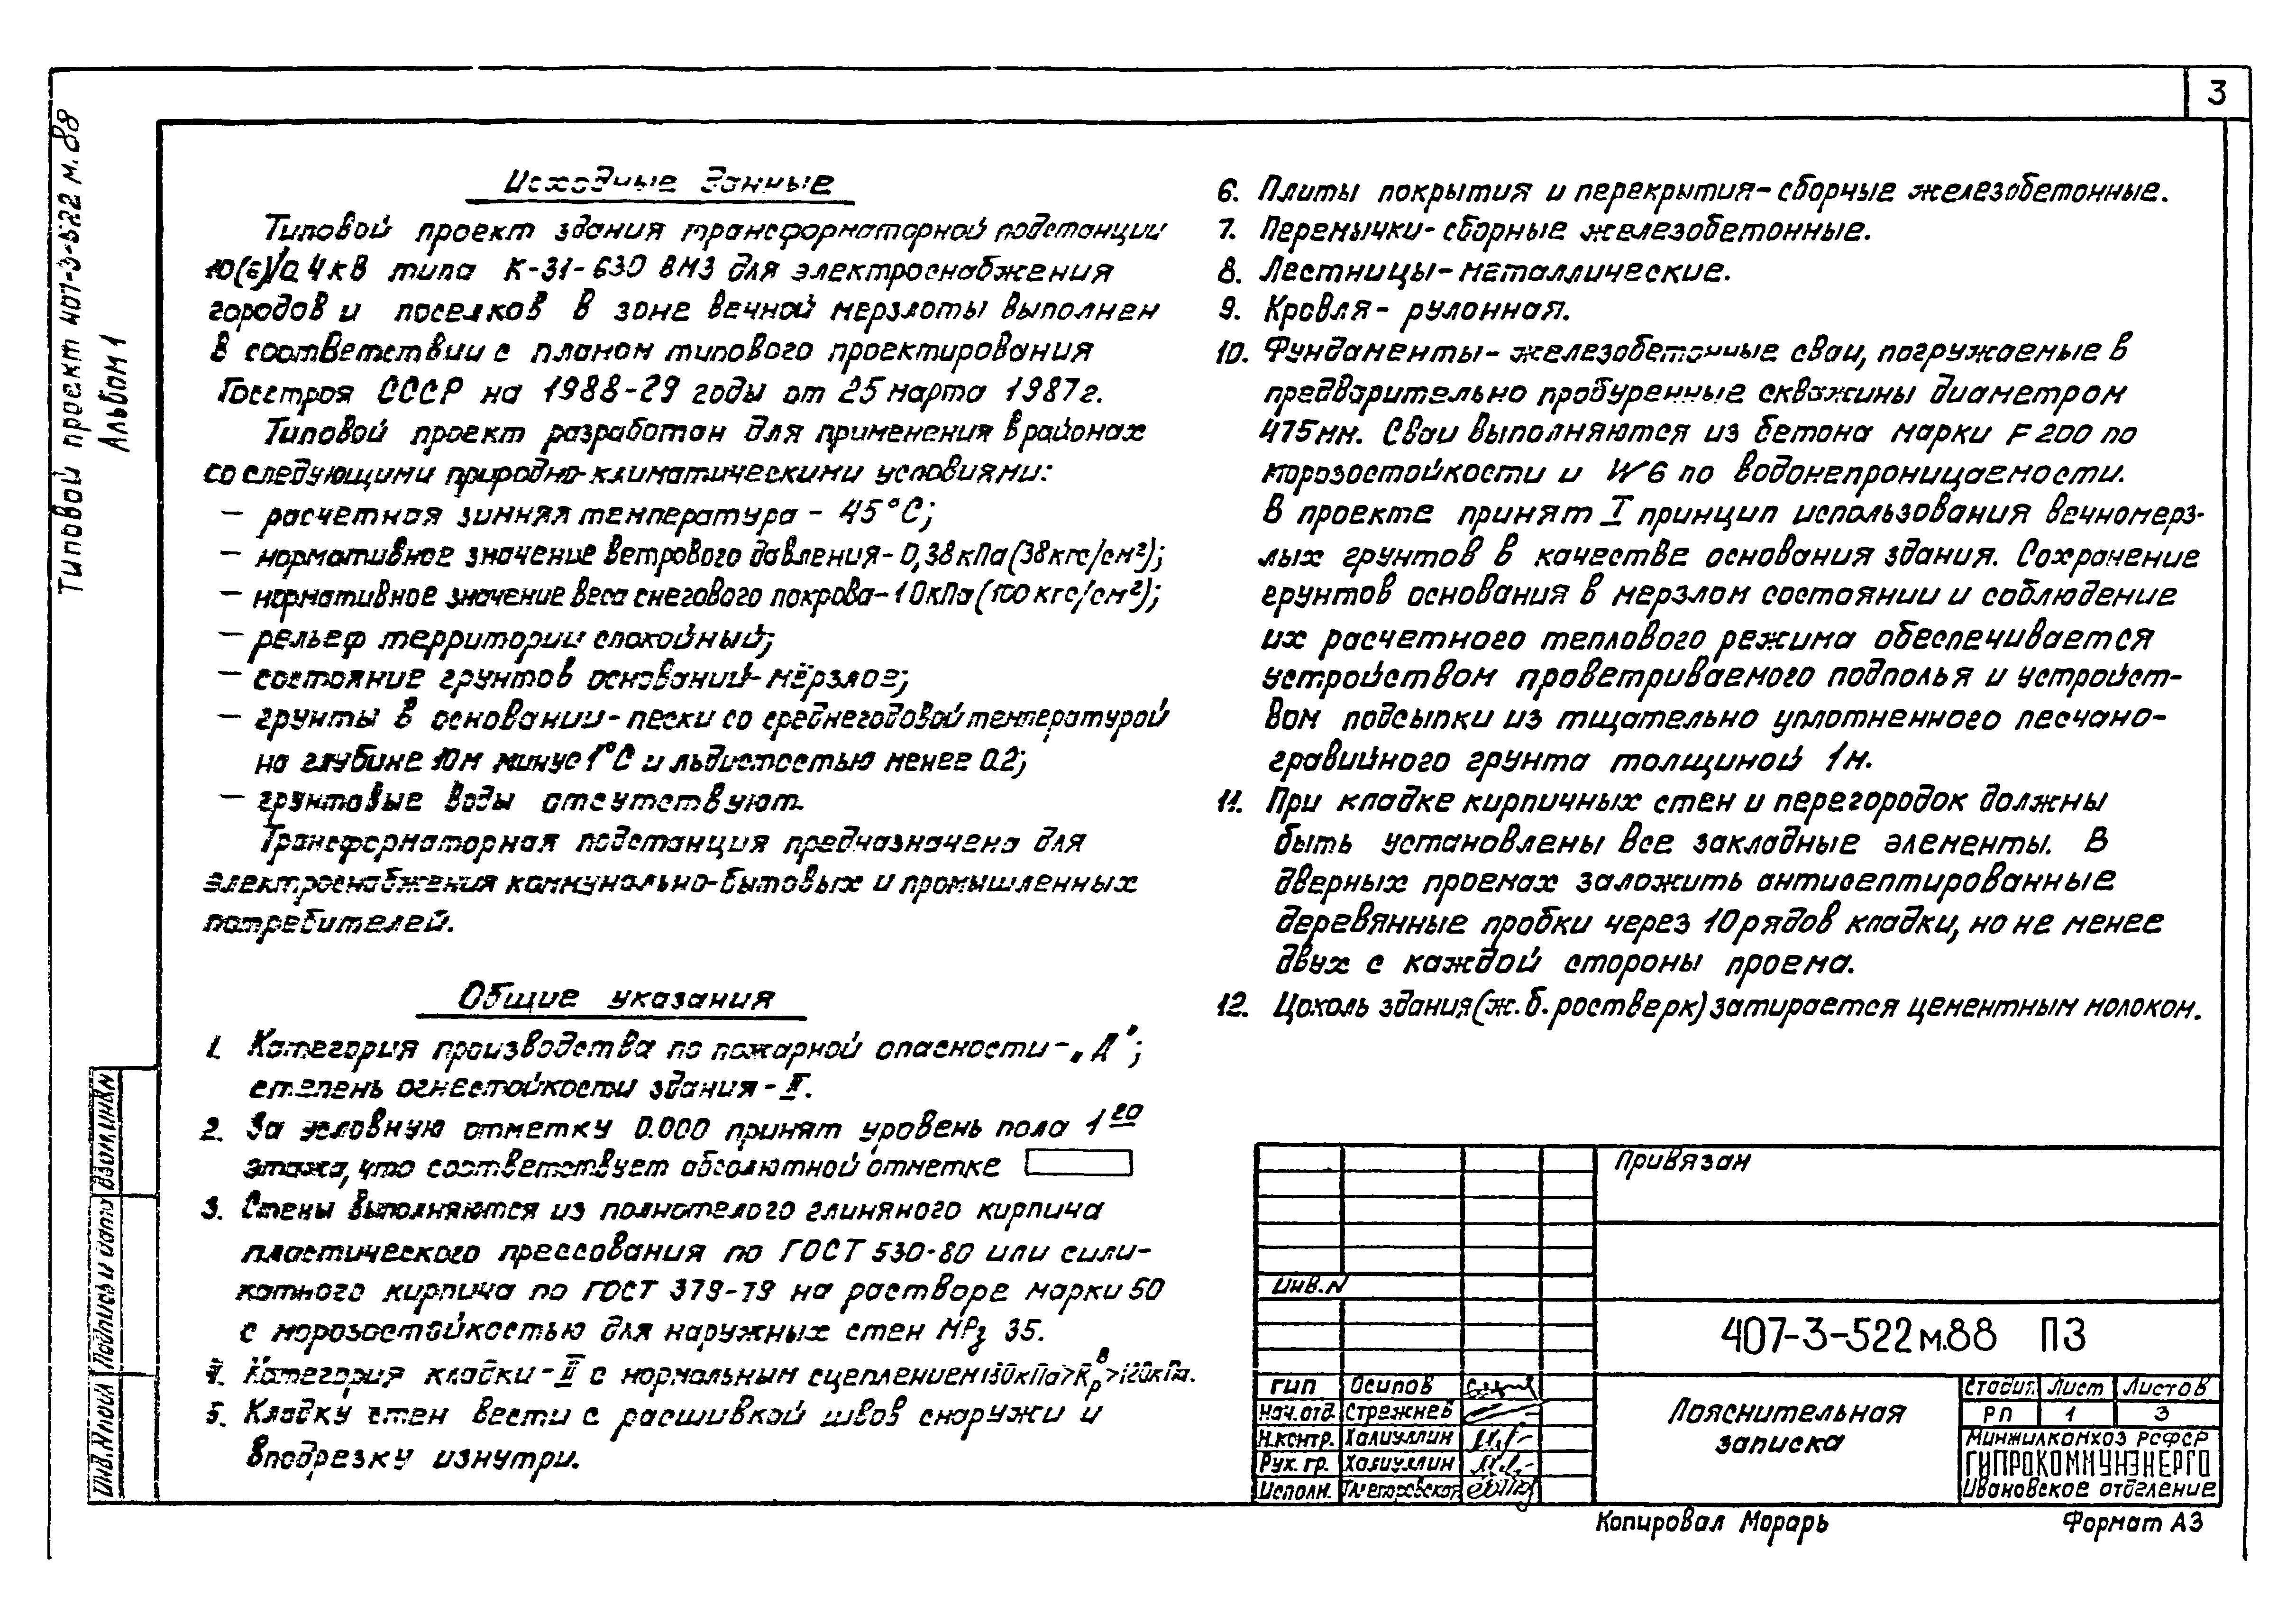 3
Типовой проект 407-3-522 м.88
Альбом 1
Исходные данные
Типовой проект здания трансформаторной подстанции
10(6)/0,4кВ типа К-31-630 ВМЗ для электроснабжения
городов и поселков в зоне вечной мерзлоты выполнен
в соответствии с планом типового проектирования
Госстроя СССР на 1988-29 годы от 25 марта 1987г.
Типовой проект разработан для применения в районах
со следующими природно-климатическими условиями:
— расчетная зимняя температура - 45°С;
— нормативное значение ветрового давления- 0,38кПа(38кгс/см²);
— нормативное значение веса снегового покрова-1 0кПа(100 кгс/см²);
— рельеф территории спокойный;
— состояние грунтов оснований-мёрзлое;
— грунты в основании-пески со среднегодовой температурой
на глубине 10м минус 1°С и льдистостью менее 0.2;
— грунтовые воды отсутствуют.
Трансформаторная подстанция предназначена для
электроснабжения коммунально-бытовых и промышленных
потребителей.
Общие указания
1. Категория производства по пожарной опасности-„Д";
степень огнестойкости здания-II.
2. За условную отметку 0.000 принят уровень пола 1го
этажа, что соответствует абсолютной отметке
3. Стены выполняются из полнотелого глиняного кирпича
пластического прессования по ГОСТ 530-80 или сили-
катного кирпича по ГОСТ 379-79 на растворе марки 50
с морозостойкостью для наружных стен МРз 35.
4. Категория кладки-II с нормальным сцеплением 180кПа>Rрв>120кПа.
5. Кладку стен вести с расшивкой швов снаружи и
вподрезку изнутри.
6. Плиты покрытия и перекрытия-сборные железобетонные.
7. Перемычки-сборные железобетонные.
8. Лестницы-металлические.
9. Кровля-рулонная.
10. Фундаменты-железобетонные сваи, погружаемые в
предварительно пробуренные скважины диаметром
475мм. Сваи выполняются из бетона марки F 200 по
морозостойкости и W6 по водонепроницаемости.
В проекте принят I принцип использования вечномерз-
лых грунтов в качестве основания здания. Сохранение
грунтов основания в мерзлом состоянии и соблюдение
их расчетного теплового режима обеспечивается
устройством проветриваемого подполья и устройст-
вом подсыпки из тщательно уплотненного песчано-
гравийного грунта толщиной 1м.
11. При кладке кирпичных стен и перегородок должны
быть установлены все закладные элементы. В
дверных проемах заложить антисептированные
деревянные пробки через 10 рядов кладки, но не менее
двух с каждой стороны проема.
12. Цоколь здания(ж.б.ростверк)затирается цементным молоком.
Взам.инв.N
Подпись и дата
Инв.Nподл
Привязан
Инв.N
407-3-522м.88 ПЗ
ГИП Осипов
Нач.отд. Стрежнев
Н.контр. Халиуллин
Рук.гр. Халиуллин
Исполн.
Пояснительная
записка
Стадия Лист Листов
РП 1 3
Минжилкомхоз РСФСР
ГИПРОКОММУНЭНЕРГО
Ивановское отделение
Копировал Морарь
Формат А3